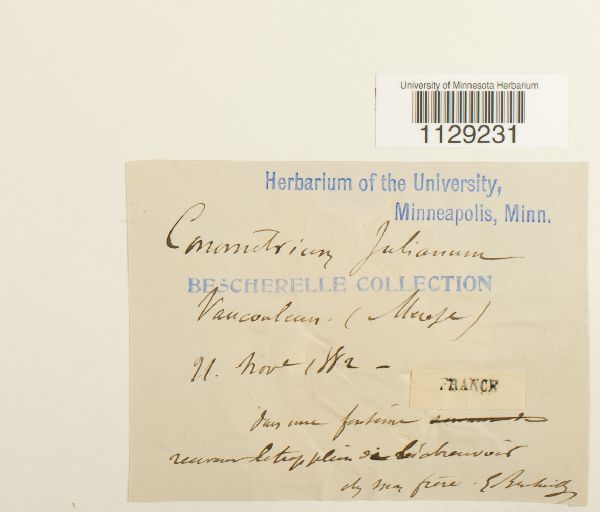 University of Minnesota Herbarium
1129231
Herbarium of the University,
Minneapolis, Minn.
Conomitrium Julianum
BESCHERELLE COLLECTION
Vaucouleurs. (Meuse)
21. Nov.e 1882 -
FRANCE
dans une fontaine
recevant le trop plein de l'abreuvoir
chez mon frère. E Bescherelle